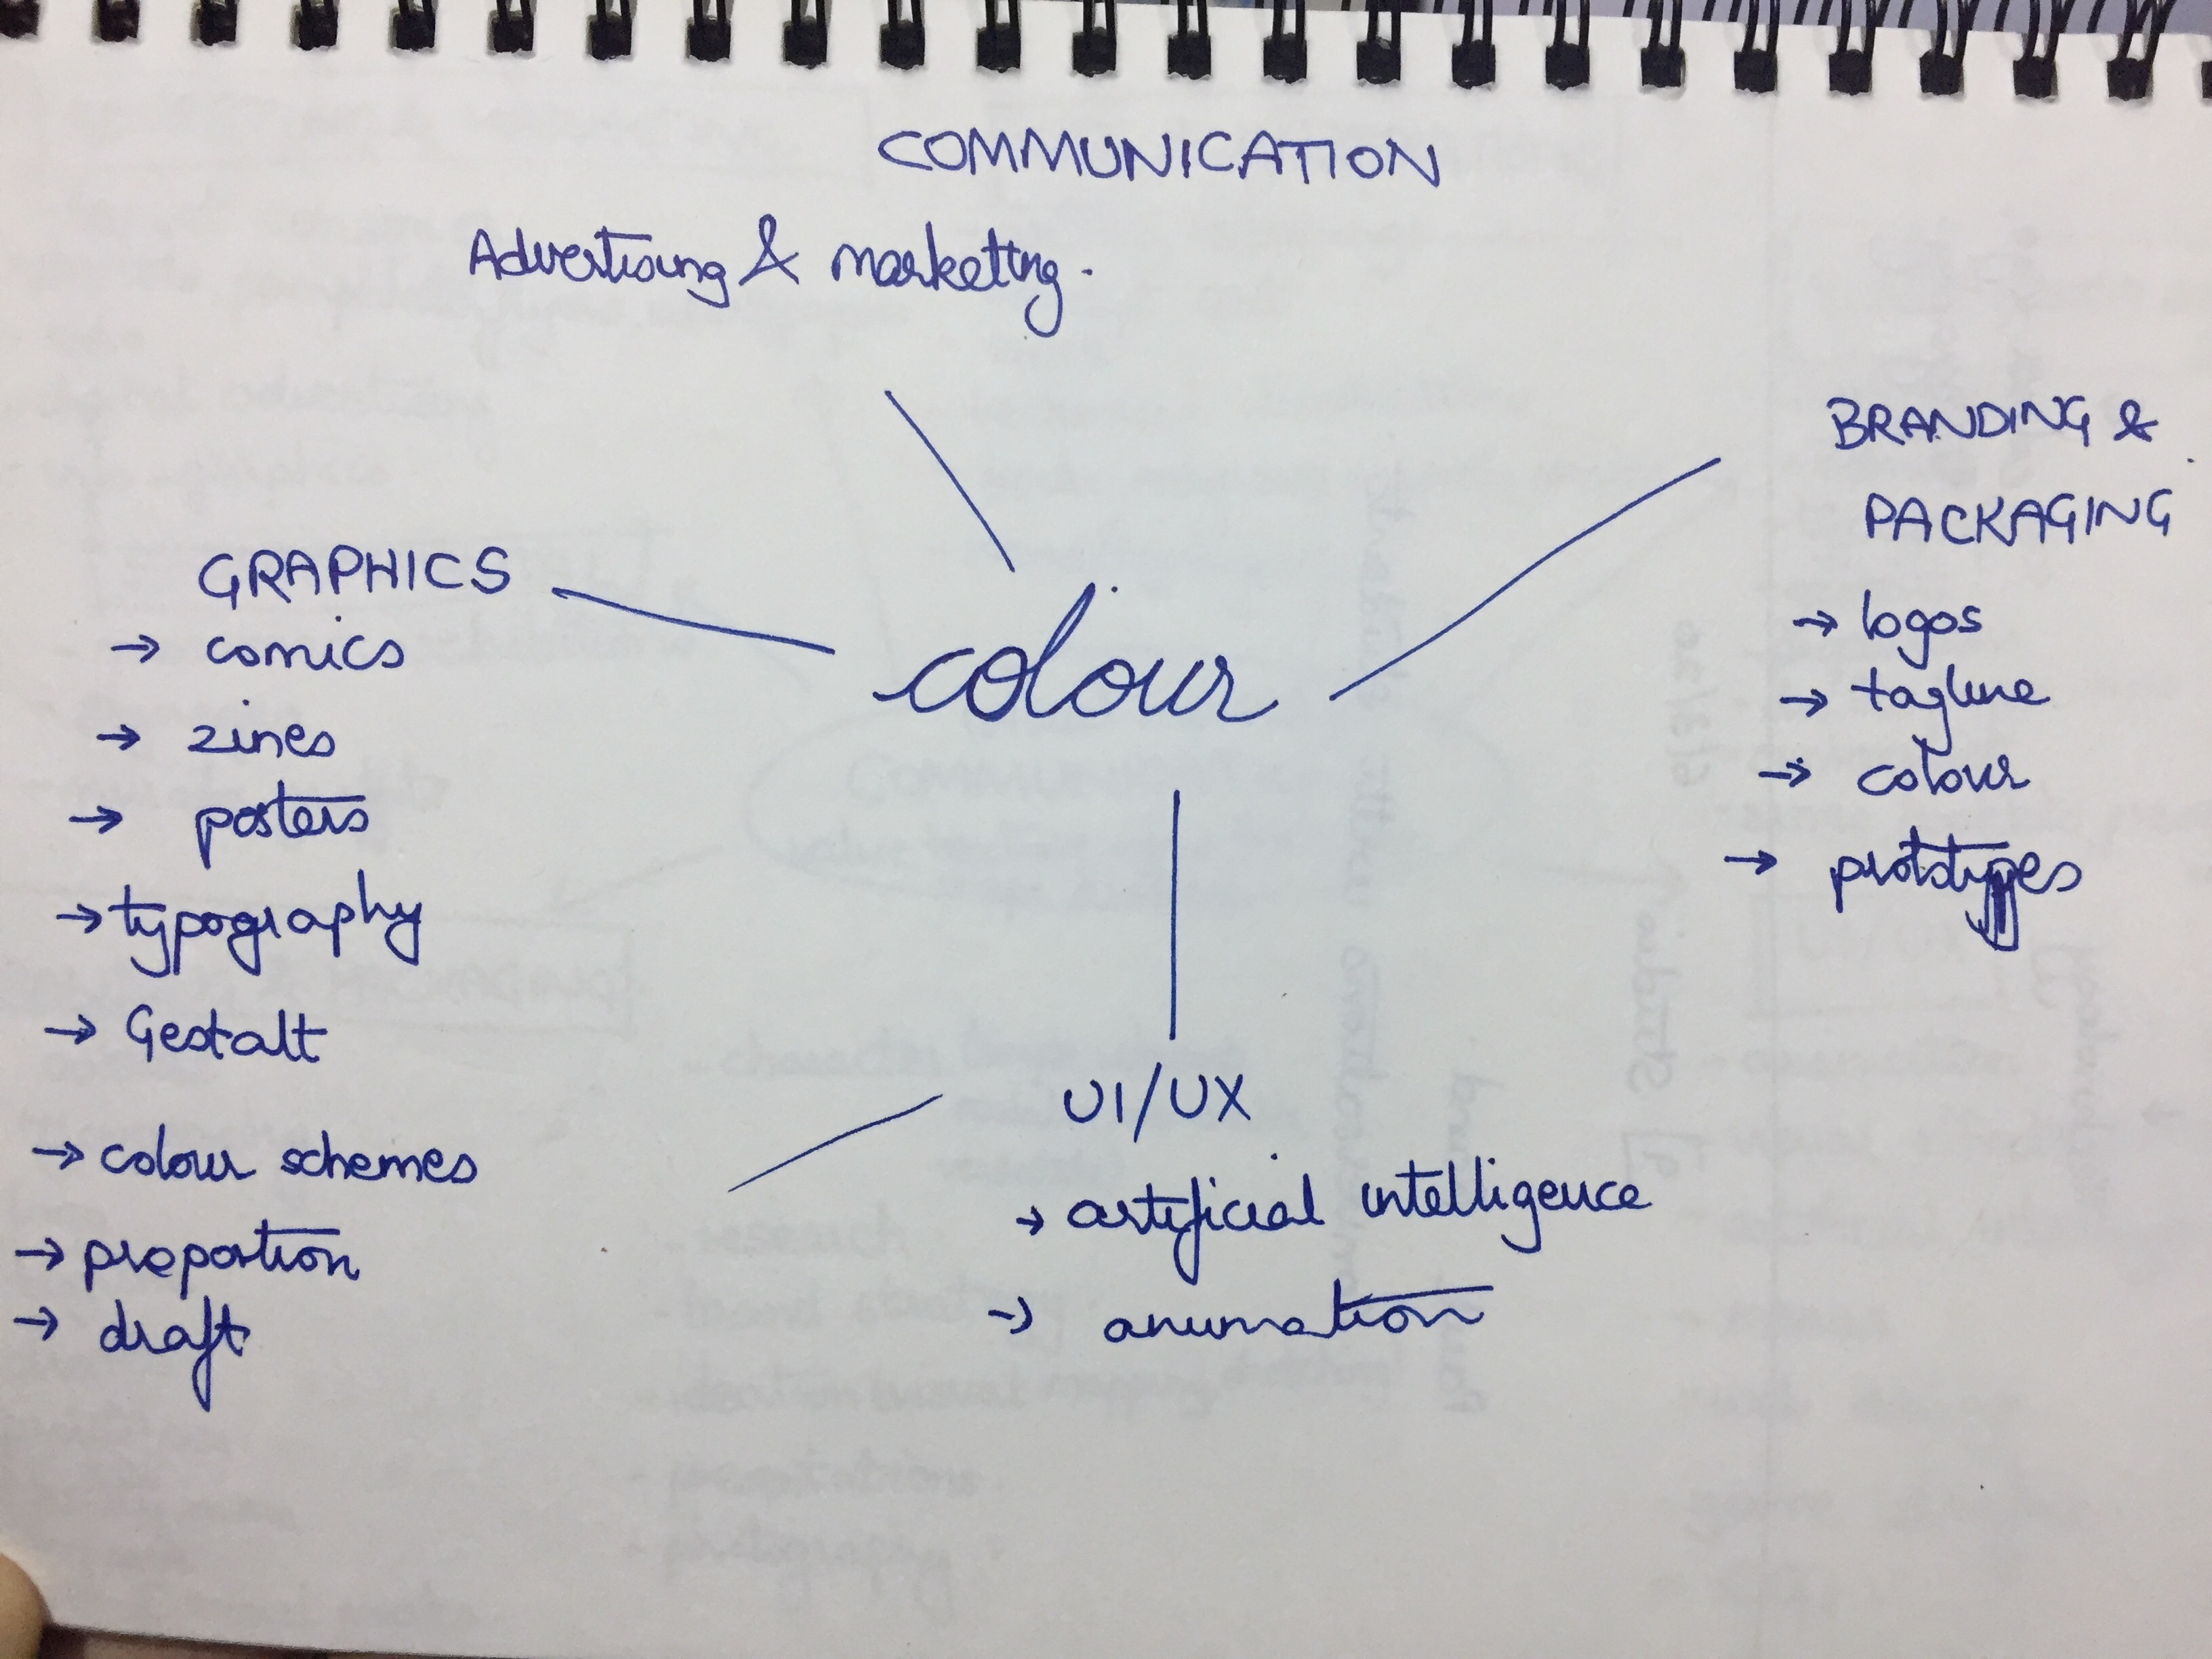 COMMUNICATION
Advertising & marketing.
BRANDING &
PACKAGING
→ logos
→ tagline
→ colour
→ prototypes
GRAPHICS
→ comics
→ zines
→ posters
→ typography
→ Gestalt
→ colour schemes
→ proportion
→ draft
colour
UI/UX
→ artificial intelligence
→ animation